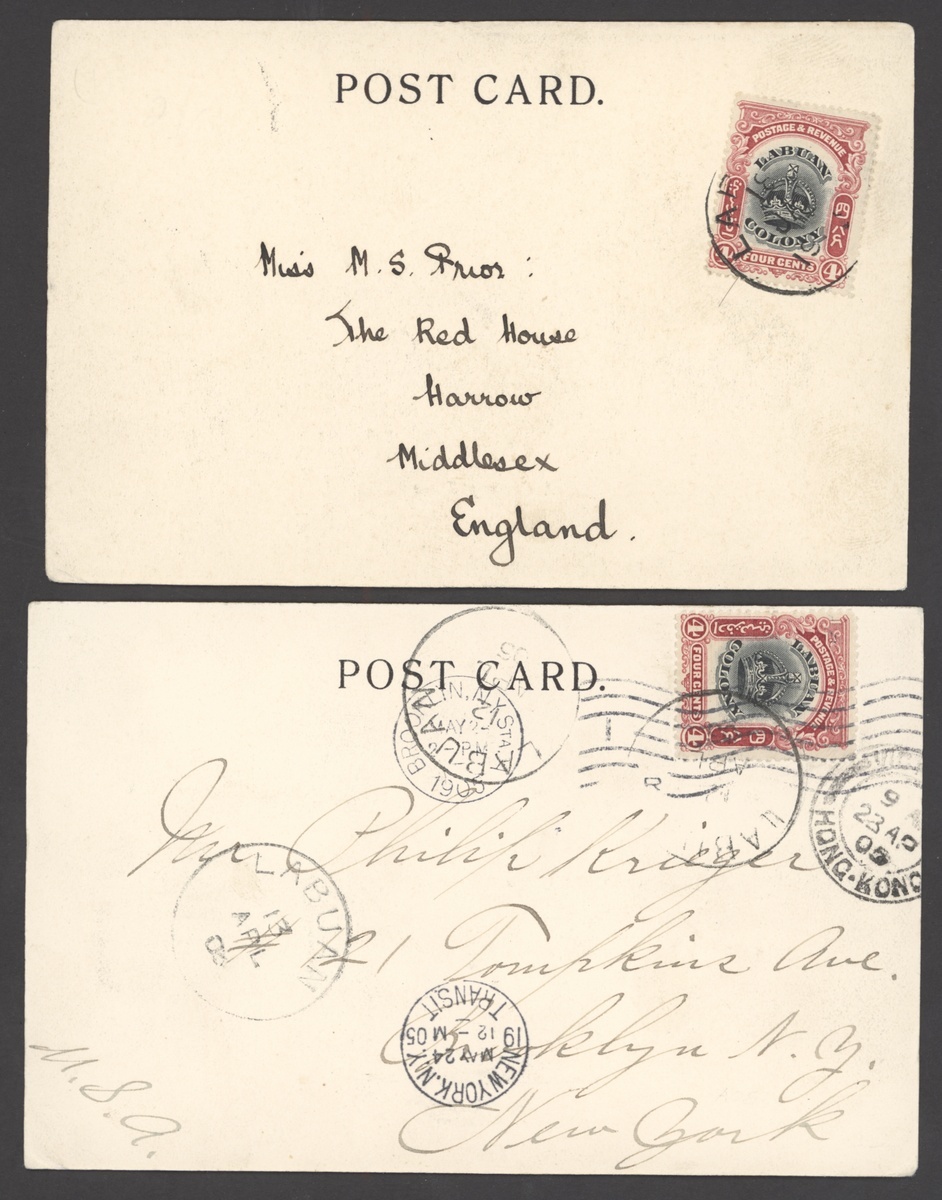 POST CARD.
POSTAGE & REVENUE
LABUAN
COLONY
FOUR CENTS
4
Miss M. S. Prior:
The Red House
Harrow
Middlesex
England.
POST CARD.
POSTAGE & REVENUE
LABUAN
COLONY
FOUR CENTS
4
4
BROOKLYN, N.Y. STA.
MAY 2
1905
Mr Philip Krieger
HONG-KONG
9
23 AP
05
LABUAN
13
APL
# 21 Tompkins Ave.
NEW YORK, N.Y.
MAY 24
19 12-M 05
TRANSIT
Brooklyn N. Y.
New York
U. S. A.